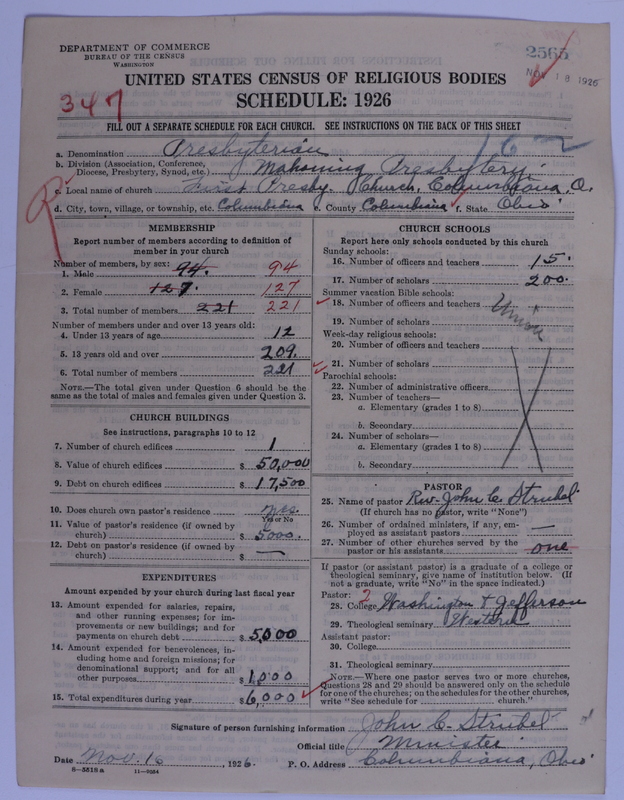 DEPARTMENT OF COMMERCE
BUREAU OF THE CENSUS
WASHINGTON
2565
NOV 18 1926
UNITED STATES CENSUS OF RELIGIOUS BODIES
347
SCHEDULE: 1926
FILL OUT A SEPARATE SCHEDULE FOR EACH CHURCH. SEE INSTRUCTIONS ON THE BACK OF THIS SHEET
162
a. Denomination Presbyterian
b. Division (Association, Conference, Diocese, Presbytery, Synod, etc.) Mahoning Presbytery.
c. Local name of church First Presby. Church, Columbiana, O.
d. City, town, village, or township, etc. Columbiana e. County Columbiana f. State Ohio
MEMBERSHIP
Report number of members according to definition of
member in your church
Number of members, by sex:
1. Male 94. 94
2. Female 127. 127
3. Total number of members 221 221
Number of members under and over 13 years old:
4. Under 13 years of age 12
5. 13 years old and over 209.
6. Total number of members 221
NOTE.—The total given under Question 6 should be the
same as the total of males and females given under Question 3.
CHURCH BUILDINGS
See instructions, paragraphs 10 to 12
7. Number of church edifices 1
8. Value of church edifices $ 50,000
9. Debt on church edifices $ 17,500
10. Does church own pastor's residence yes.
Yes or No
11. Value of pastor's residence (if owned by
church) $ 5000.
12. Debt on pastor's residence (if owned by
church) $ —
EXPENDITURES
Amount expended by your church during last fiscal year
13. Amount expended for salaries, repairs,
and other running expenses; for im-
provements or new buildings; and for
payments on church debt $ 5,000
14. Amount expended for benevolences, in-
cluding home and foreign missions; for
denominational support; and for all
other purposes $ 1,000
15. Total expenditures during year $ 6,000
CHURCH SCHOOLS
Report here only schools conducted by this church
Sunday schools:
16. Number of officers and teachers 15.
17. Number of scholars 200.
Summer vacation Bible schools:
18. Number of officers and teachers Union
19. Number of scholars
Week-day religious schools:
20. Number of officers and teachers
21. Number of scholars
Parochial schools:
22. Number of administrative officers
23. Number of teachers—
a. Elementary (grades 1 to 8)
b. Secondary
24. Number of scholars—
a. Elementary (grades 1 to 8)
b. Secondary
PASTOR
25. Name of pastor Rev. John C. Strubel
(If church has no pastor, write "None")
26. Number of ordained ministers, if any, em-
ployed as assistant pastors —
27. Number of other churches served by the
pastor or his assistants one
If pastor (or assistant pastor) is a graduate of a college or
theological seminary, give name of institution below. (If
not a graduate, write "No" in the space indicated.)
Pastor: 2
28. College Washington & Jefferson
29. Theological seminary Western
Assistant pastor:
30. College
31. Theological seminary
NOTE.—Where one pastor serves two or more churches,
Questions 28 and 29 should be answered only on the schedule
for one of the churches; on the schedules for the other churches,
write "See schedule for church."
Signature of person furnishing information John C. Strubel
Official title Minister
Date Nov. 16, 1926. P. O. Address Columbiana, Ohio
8—5518 a 11—9554